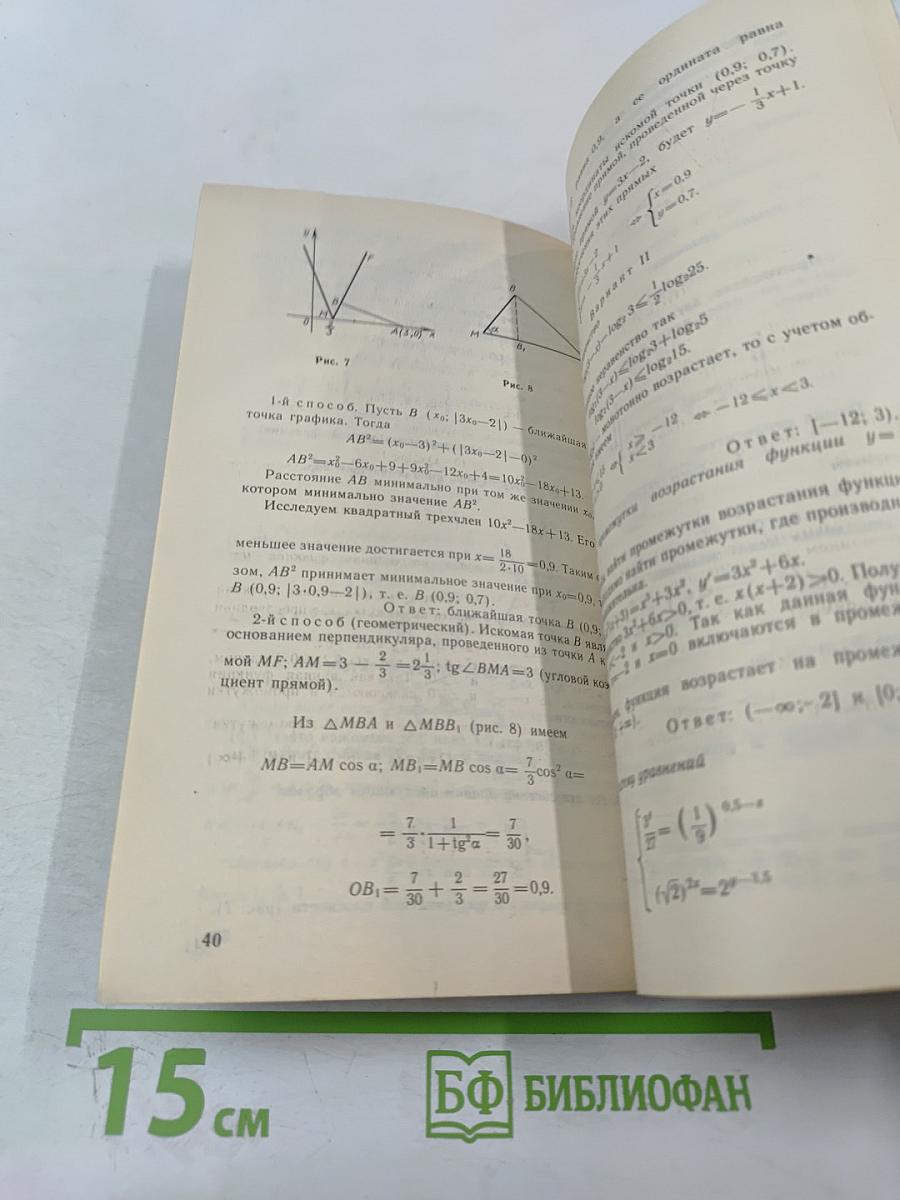 y
F
B
M
0
2
3
A(3;0)
x
Рис. 7
B
M
α
B₁
Рис. 8
1-й способ. Пусть B (x₀; |3x₀—2|) — ближайшая
точка графика. Тогда
AB²=(x₀—3)²+(|3x₀—2|—0)²
AB²=x₀²—6x₀+9+9x₀²—12x₀+4=10x₀²—18x₀+13.
Расстояние AB минимально при том же значении x₀,
котором минимально значение AB².
Исследуем квадратный трехчлен 10x²—18x+13. Его
меньшее значение достигается при x= 18/(2·10) =0,9. Таким
зом, AB² принимает минимальное значение при x₀=0,9,
B (0,9; |3·0,9—2|), т. е. B (0,9; 0,7).
Ответ: ближайшая точка B (0,9;
2-й способ (геометрический). Искомая точка B
основанием перпендикуляра, проведенного из точки A к
мой MF; AM=3 — 2/3 =2 1/3; tg∠BMA=3 (угловой коэ
циент прямой).
Из △MBA и △MBB₁ (рис. 8) имеем
MB=AM cos α; MB₁=MB cos α= 7/3 cos² α=
= 7/3 · 1/(1+tg²α) = 7/30,
OB₁= 7/30 + 2/3 = 27/30 =0,9.
40
равна 0,9, а ее ордината равна
искомой точки (0,9; 0,7).
прямой, проведенной через точку
прямой y=3x—2, будет y=— 1/3 x+1.
этих прямых
— 1/3 x+1 ⇔ {x=0,9
y=0,7.
Вариант II
log₂ 3≤ 1/2 log₂25.
неравенство так
log₂(3—x)≤log₂3+log₂5
log₂(3—x)≤log₂15.
монотонно возрастает, то с учетом об-
x≥—12
x≤3 ⇔ —12≤x<3.
Ответ: [—12; 3).
промежутки возрастания функции y=
найти промежутки возрастания функци
найти промежутки, где производн
(x+3)=x³+3x², y′=3x²+6x.
3x²+6x>0, т. е. x(x+2)≥0. Полу
и x>0. Так как данная фун
и x=0 включаются в промеж
функция возрастает на промеж
Ответ: (—∞;—2] и [0;
уравнений
27 = (1/9)^(0,5—x)
(√2)^(2x)=2^(y—3,5)
15 см
БФ БИБЛИОФАН